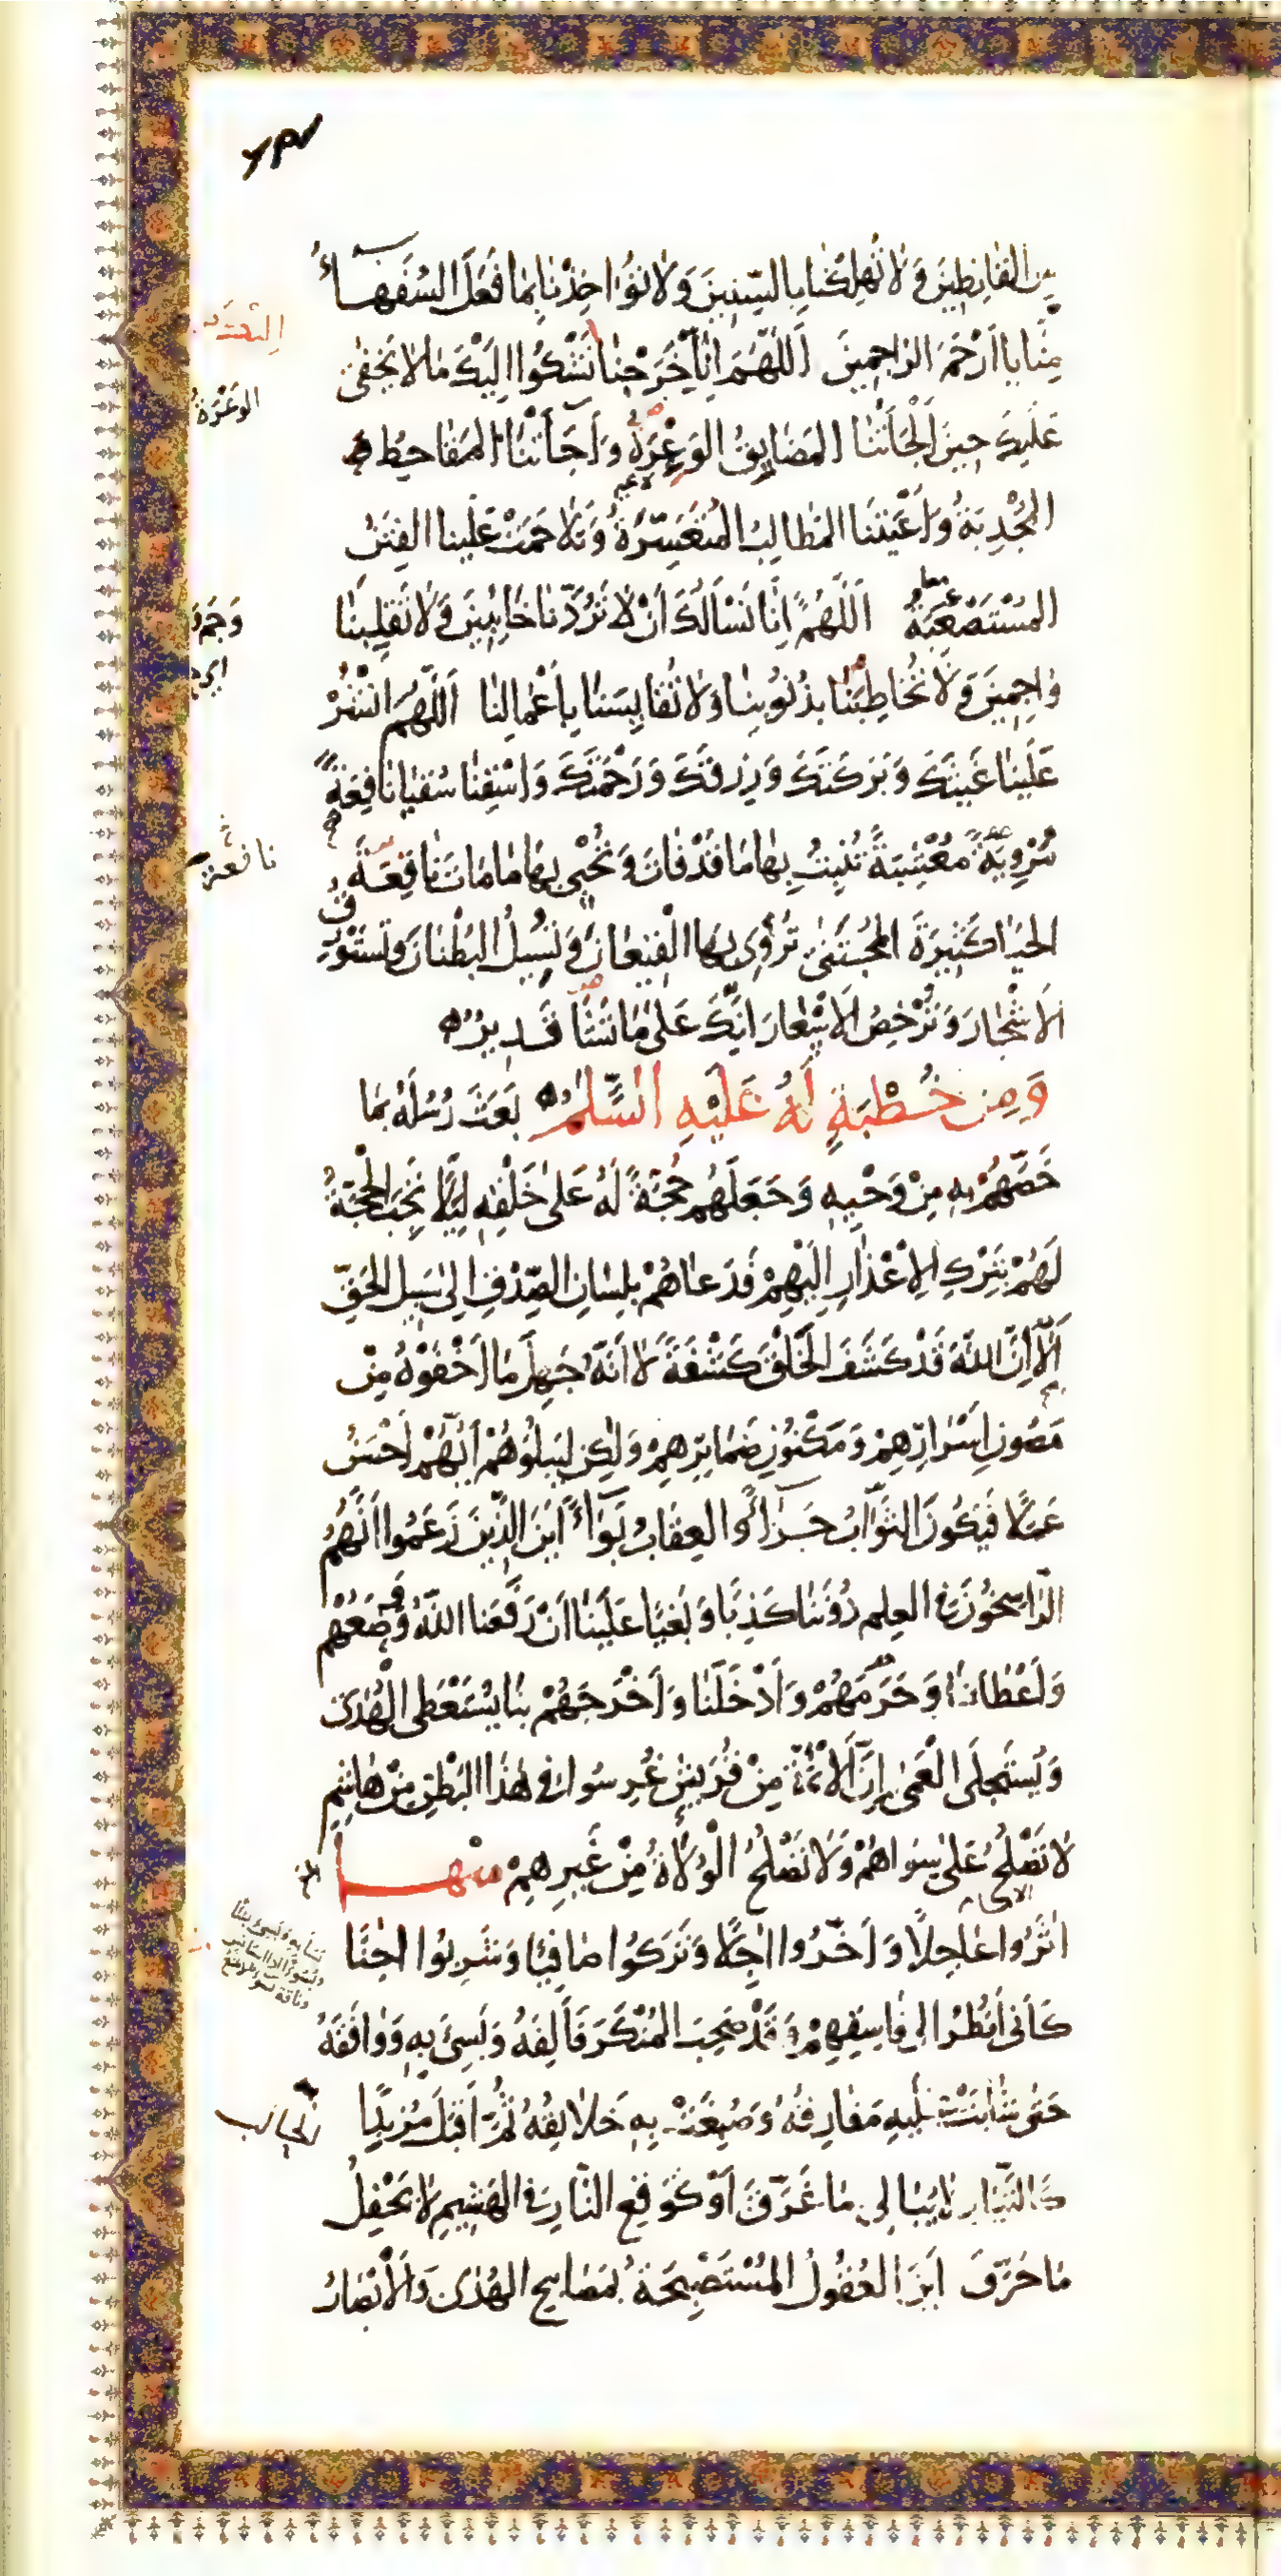 مِنَ القَانِطِينَ وَلَا تُهْلِكْنَا بِالسِّنِينَ وَلَا تُؤَاخِذْنَا بِمَا فَعَلَ السُّفَهَاءُ
مِنَّا يَا أَرْحَمَ الرَّاحِمِينَ اَللّٰهُمَّ إِنَّا خَرَجْنَا نَشْكُوا إِلَيْكَ مَا لَا يَخْفَى
عَلَيْكَ حِينَ أَلْجَأَتْنَا المَضَايِقُ الوَعْرَةُ وَأَجَاءَتْنَا المَقَاحِيطُ
المُجْدِبَةُ وَأَعْيَتْنَا المَطَالِبُ المُتَعَسِّرَةُ وَتَلَاحَمَتْ عَلَيْنَا الفِتَنُ
المُسْتَصْعِبَةُ اَللّٰهُمَّ إِنَّا نَسْأَلُكَ أَنْ لَا تَرُدَّنَا خَائِبِينَ وَلَا تَقْلِبَنَا
وَاجِمِينَ وَلَا تُخَاطِبَنَا بِذُنُوبِنَا وَلَا تُقَايِسَنَا بِأَعْمَالِنَا اَللّٰهُمَّ انْشُرْ
عَلَيْنَا غَيْثَكَ وَبَرَكَتَكَ وَرِزْقَكَ وَرَحْمَتَكَ وَاسْقِنَا سُقْيَا نَافِعَةً
مُرْوِيَةً مُعْشِبَةً تُنْبِتُ بِهَا مَا قَدْ فَاتَ وَتُحْيِي بِهَا مَا مَاتَ نَاقِعَةَ
الحَيَا كَثِيرَةَ المُجْتَنَى تُرْوِي بِهَا القِيعَانَ وَتُسِيلُ البُطْنَانَ وَتَسْتَوْرِقُ
الأَشْجَارَ وَتُرْخِصُ الأَسْعَارَ إِنَّكَ عَلَى مَا تَشَاءُ قَدِيرٌ
وَمِنْ خُطْبَةٍ لَهُ عَلَيْهِ السَّلَمُ بَعَثَ رُسُلَهُ بِمَا
خَصَّهُمْ بِهِ مِنْ وَحْيِهِ وَجَعَلَهُمْ حُجَّةً لَهُ عَلَى خَلْقِهِ لِئَلَّا تَجِبَ الحُجَّةُ
لَهُمْ بِتَرْكِ الإِعْذَارِ إِلَيْهِمْ فَدَعَاهُمْ بِلِسَانِ الصِّدْقِ إِلَى سَبِيلِ الحَقِّ
أَلَا إِنَّ اللهَ قَدْ كَشَفَ الخَلْقَ كَشْفَةً لَا أَنَّهُ جَهِلَ مَا أَخْفَوْهُ مِنْ
مَصُونِ أَسْرَارِهِمْ وَمَكْنُونِ ضَمَائِرِهِمْ وَلٰكِنْ لِيَبْلُوَهُمْ أَيُّهُمْ أَحْسَنُ
عَمَلًا فَيَكُونَ الثَّوَابُ جَزَاءً وَالعِقَابُ بَوَاءً أَيْنَ الَّذِينَ زَعَمُوا أَنَّهُمُ
الرَّاسِخُونَ فِي العِلْمِ دُونَنَا كَذِبًا وَبَغْيًا عَلَيْنَا أَنْ رَفَعَنَا اللهُ وَوَضَعَهُمْ
وَأَعْطَانَا وَحَرَمَهُمْ وَأَدْخَلَنَا وَأَخْرَجَهُمْ بِنَا يُسْتَعْطَى الْهُدَى
وَيُسْتَجْلَى الْعَمَى إِنَّ الأَئِمَّةَ مِنْ قُرَيْشٍ غُرِسُوا فِي هٰذَا البَطْنِ مِنْ هَاشِمٍ
لَا تَصْلُحُ عَلَى سِوَاهُمْ وَلَا تَصْلُحُ الْوُلَاةُ مِنْ غَيْرِهِمْ منها
آثَرُوا عَاجِلًا وَأَخَّرُوا آجِلًا وَتَرَكُوا صَافِيًا وَشَرِبُوا آجِنًا
كَأَنِّي أَنْظُرُ إِلَى فَاسِقِهِمْ وَقَدْ صَحِبَ المُنْكَرَ فَأَلِفَهُ وَبَسِئَ بِهِ وَوَافَقَهُ
حَتَّى شَابَتْ عَلَيْهِ مَفَارِقُهُ وَصُبِغَتْ بِهِ خَلَائِقُهُ ثُمَّ أَقْبَلَ مُزْبِدًا
كَالتَّيَّارِ لَا يُبَالِي مَا غَرَّقَ أَوْ كَوَقْعِ النَّارِ فِي الهَشِيمِ لَا يَحْفِلُ
مَا حَرَّقَ أَيْنَ العُقُولُ المُسْتَصْبِحَةُ بِمَصَابِيحِ الهُدَى وَالأَبْصَارُ
الوَعْرَةُ
نافعة